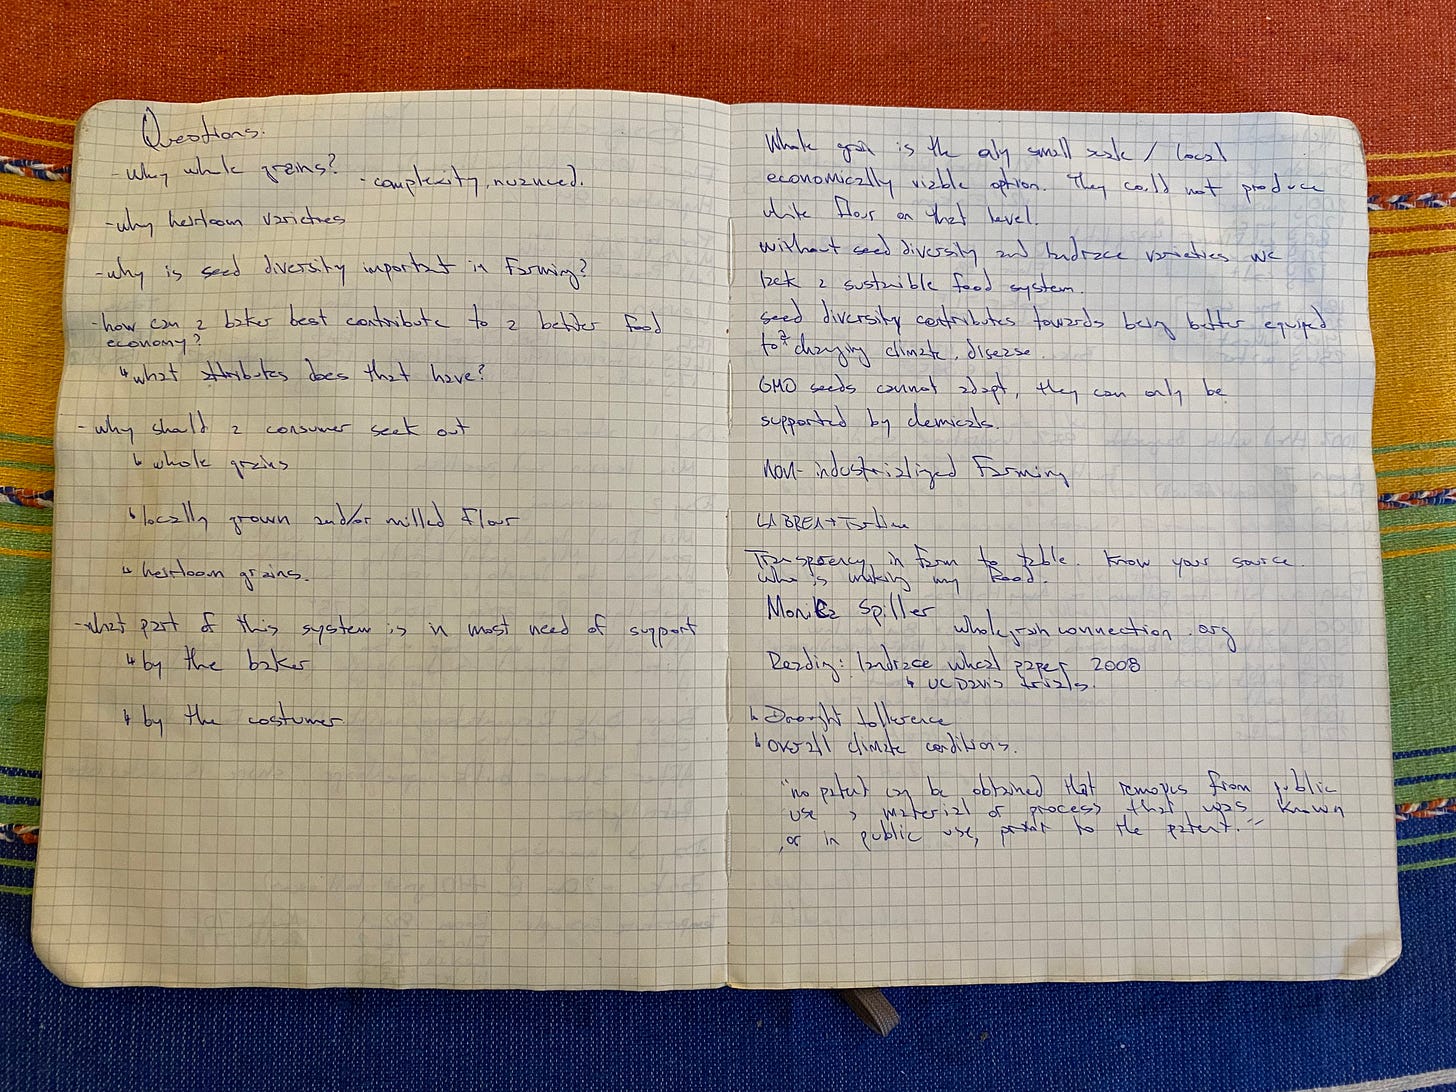 Questions.
- why whole grains?
- complexity, nuanced.
- why heirloom varieties
- why is seed diversity important in farming?
- how can a baker best contribute to a better food
economy?
↳ what attributes does that have?
- why should a consumer seek out
↳ whole grains
↳ locally grown and/or milled flour
↳ heirloom grains.
- what part of this system is in most need of support
↳ by the baker
↳ by the costumer
Whole grain is the only small scale / local
economically viable option. They could not produce
white flour on that level.
without seed diversity and landrace varieties we
lack a sustaible food system.
seed diversity contributes towards being better equiped
to a changing climate, disease.
GMO seeds cannot adapt, they can only be
supported by chemicals.
non-industrialized farming
LA BREA +
Transparency in farm to table. Know your source.
who is making my food.
Monica Spiller
wholegrainconnection.org
Reading: landrace wheat paper 2008
↳ UC Davis trials.
↳ Drought tollerence
↳ overall climate conditions.
"no patent can be obtained that removes from public
use a material or process that was known
or in public use, prior to the patent."